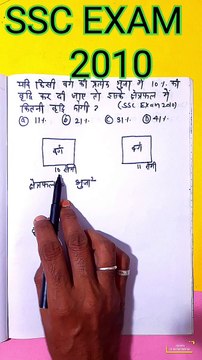 SSC EXAM
2010
यदि किसी वर्ग की प्रत्येक भुजा में 10% की
वृद्धि कर दी जाए तो इसके क्षेत्रफल में
कितनी वृद्धि होगी ? (SSC Exam 2010)
(a) 11% (b) 21% (c) 31% (d) 41%
वर्ग वर्ग
10 सेमी 11 सेमी
क्षेत्रफल भुजा